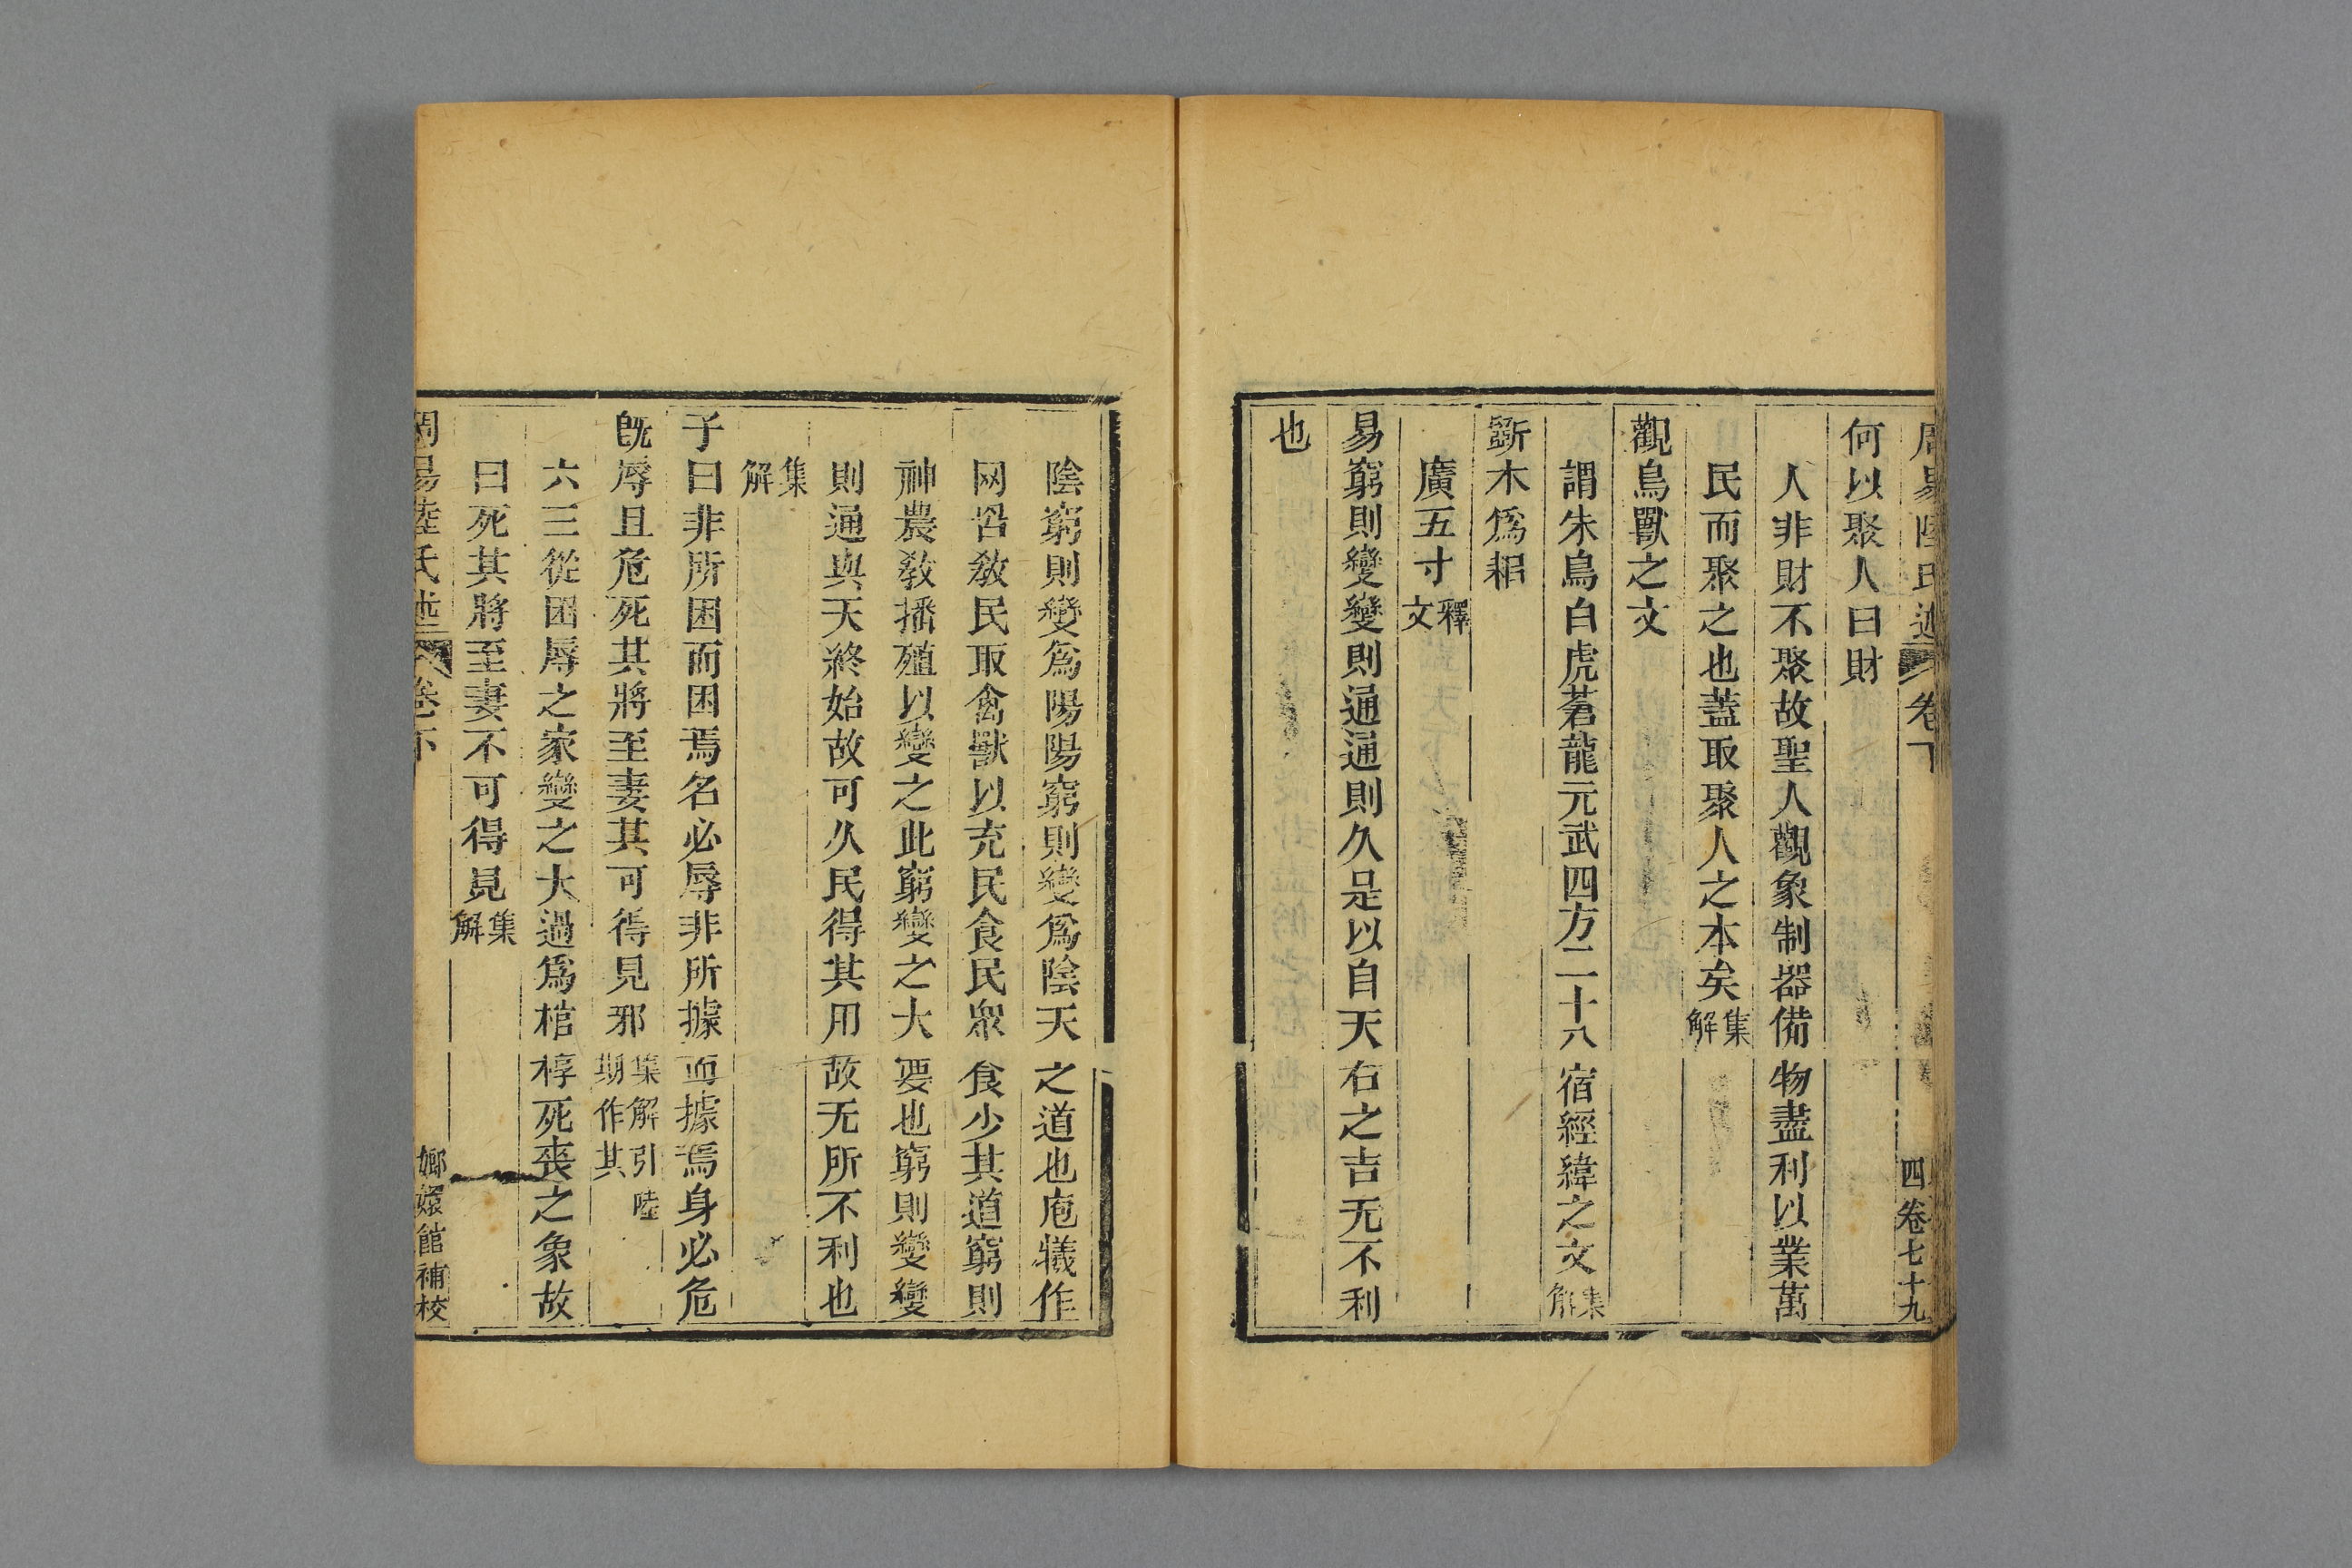 周易陸氏述 卷下 四卷七十九
何以聚人曰財
人非財不聚故聖人觀象制器備物盡利以業萬
民而聚之也蓋取聚人之本矣集解
觀鳥獸之文
謂朱鳥白虎蒼龍元武四方二十八宿經緯之文集解
斲木爲耜
廣五寸釋文
易窮則變變則通通則久是以自天右之吉无不利
也
陰窮則變爲陽陽窮則變爲陰天之道也庖犧作
网罟敎民取禽獸以充民食民眾食少其道窮則
神農敎播殖以變之此窮變之大要也窮則變變
則通與天終始故可久民得其用故无所不利也
集解
子曰非所困而困焉名必辱非所據而據焉身必危
旣辱且危死其將至妻其可得見邪集解引陸期作其
六三從困辱之家變之大過爲棺椁死喪之象故
曰死其將至妻不可得見集解
周易陸氏述 卷下 嫏嬛館補校